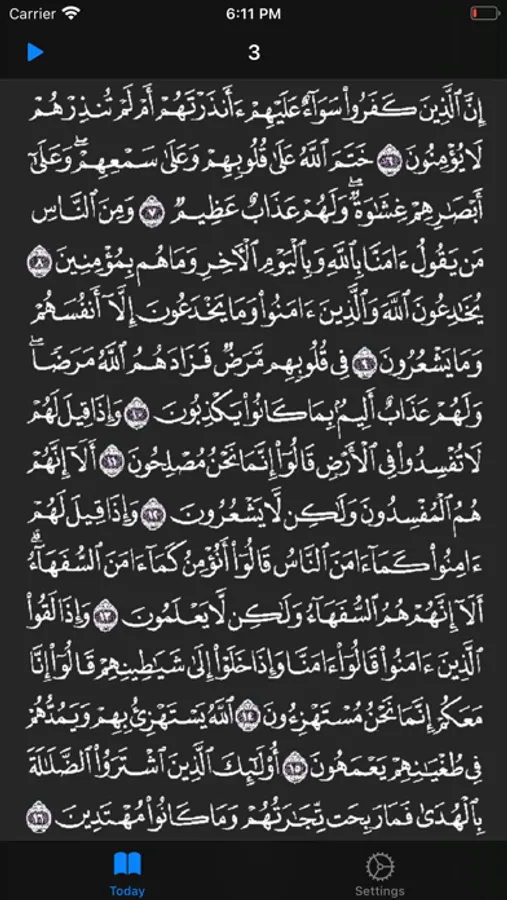 Carrier 6:11 PM
3
إِنَّ ٱلَّذِينَ كَفَرُوا۟ سَوَآءٌ عَلَيْهِمْ ءَأَنذَرْتَهُمْ أَمْ لَمْ تُنذِرْهُمْ
لَا يُؤْمِنُونَ ٦ خَتَمَ ٱللَّهُ عَلَىٰ قُلُوبِهِمْ وَعَلَىٰ سَمْعِهِمْ ۖ وَعَلَىٰٓ
أَبْصَـٰرِهِمْ غِشَـٰوَةٌ ۖ وَلَهُمْ عَذَابٌ عَظِيمٌ ٧ وَمِنَ ٱلنَّاسِ
مَن يَقُولُ ءَامَنَّا بِٱللَّهِ وَبِٱلْيَوْمِ ٱلْـَٔاخِرِ وَمَا هُم بِمُؤْمِنِينَ ٨
يُخَـٰدِعُونَ ٱللَّهَ وَٱلَّذِينَ ءَامَنُوا۟ وَمَا يَخْدَعُونَ إِلَّآ أَنفُسَهُمْ
وَمَا يَشْعُرُونَ ٩ فِى قُلُوبِهِم مَّرَضٌ فَزَادَهُمُ ٱللَّهُ مَرَضًا ۖ
وَلَهُمْ عَذَابٌ أَلِيمٌۢ بِمَا كَانُوا۟ يَكْذِبُونَ ١٠ وَإِذَا قِيلَ لَهُمْ
لَا تُفْسِدُوا۟ فِى ٱلْأَرْضِ قَالُوٓا۟ إِنَّمَا نَحْنُ مُصْلِحُونَ ١١ أَلَآ إِنَّهُمْ
هُمُ ٱلْمُفْسِدُونَ وَلَـٰكِن لَّا يَشْعُرُونَ ١٢ وَإِذَا قِيلَ لَهُمْ
ءَامِنُوا۟ كَمَآ ءَامَنَ ٱلنَّاسُ قَالُوٓا۟ أَنُؤْمِنُ كَمَآ ءَامَنَ ٱلسُّفَهَآءُ ۗ
أَلَآ إِنَّهُمْ هُمُ ٱلسُّفَهَآءُ وَلَـٰكِن لَّا يَعْلَمُونَ ١٣ وَإِذَا لَقُوا۟
ٱلَّذِينَ ءَامَنُوا۟ قَالُوٓا۟ ءَامَنَّا وَإِذَا خَلَوْا۟ إِلَىٰ شَيَـٰطِينِهِمْ قَالُوٓا۟ إِنَّا
مَعَكُمْ إِنَّمَا نَحْنُ مُسْتَهْزِءُونَ ١٤ ٱللَّهُ يَسْتَهْزِئُ بِهِمْ وَيَمُدُّهُمْ
فِى طُغْيَـٰنِهِمْ يَعْمَهُونَ ١٥ أُو۟لَـٰٓئِكَ ٱلَّذِينَ ٱشْتَرَوُا۟ ٱلضَّلَـٰلَةَ
بِٱلْهُدَىٰ فَمَا رَبِحَت تِّجَـٰرَتُهُمْ وَمَا كَانُوا۟ مُهْتَدِينَ ١٦
Today Settings